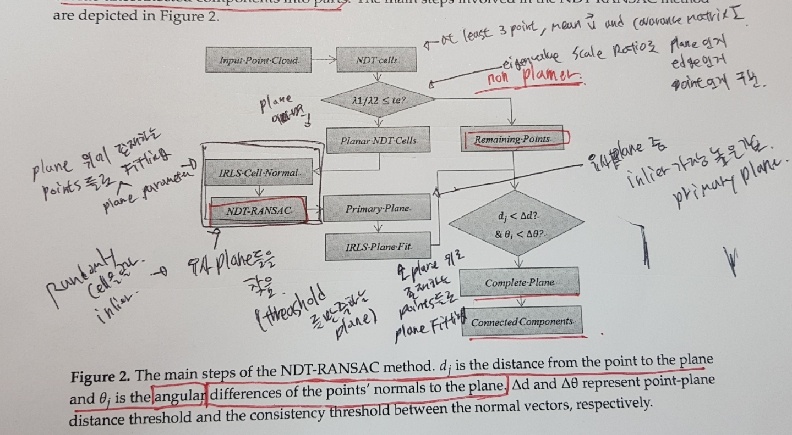 are depicted in Figure 2.
at least 3 point, mean
and covarance matrix Σ
Input·Point·Cloud
NDT·cells
eigenvalue scale ratio로 plane 인지
edge인지
point인지 구분.
non planer.
plane
λ1/λ2 ≤ te?
Planar·NDT·Cells
Remaining·Points
plane 위에 존재하는
points들로 fitting
plane parameter
IRLS·Cell·Normal
NDT-RANSAC
Primary·Plane
IRLS·Plane·Fit
dj < Δd?
& θj < Δθ?
유사 plane 중
inlier 가장 높은 것을
primary plane.
Randomly
inlier.
유사 plane들을
찾음
(threshold
를 만족하는
plane)
plane 위로
존재하는
points들로
plane Fitting
Complete·Plane
Connected·Components
Figure 2. The main steps of the NDT-RANSAC method. dj is the distance from the point to the plane
and θj is the angular differences of the points' normals to the plane, Δd and Δθ represent point-plane
distance threshold and the consistency threshold between the normal vectors, respectively.